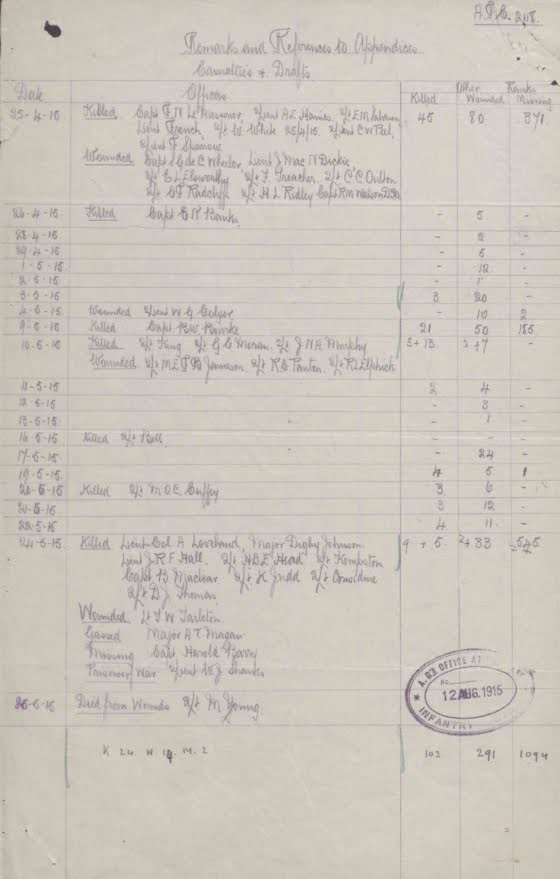 A.F.C. 2118.
Remarks and References to Appendices
Casualties & Drafts
Date Officers Other Ranks
Killed Wounded Missing
25-4-15 Killed Capt F N Le 2/Lieut A E 45 80 371
Lieut French. 2/Lt W White 25/4/15.
2/Lieut F
Wounded Capt G de C Wheeler Lieut J Mac N Dickie
2/Lt E L 2/Lt F. Preacher 2/Lt C C
2/Lt C F Radcliffe 2/Lt H L Ridley Capt R M Watson DSO
26-4-15 Killed Capt E R Banks - 5 -
28-4-15 - 2 -
29-4-15 - 6 -
1-5-15 - 12 -
2-5-15 - 1 -
3-5-15 3 20 -
4-5-15 Wounded 2/Lieut W G - 10 2
9-5-15 Killed Capt B W Bourke 21 50
10-5-15 Killed 2/Lt King 2/Lt G C Moran 2/Lt J N A Murphy 3+13 -
Wounded 2/Lt M E F B Jameson 2/Lt R C Panton 2/Lt R L Elphick
11-5-15 2 4 -
12-5-15 - 3 -
13-5-15 - 1 -
16-5-15 Killed 2/Lt Bell - - -
17-5-15 - 24 -
19-5-15 4 5 1
20-5-15 Killed 2/Lt M O C Cuffey 3 6 -
21-5-15 3 12 -
22-5-15 4 11 -
24-5-15 Killed Lieut Col A Loveband, Major Digby Johnson 9 + 5 2+33 545
Lieut J R F Hall. 2/Lt A D E Head 2/Lt Kempston
Capt B Maclear 2/Lt K Judd 2/Lt Considine
2/Lt D J Thomas
Wounded Lt T W Tarleton
Gassed Major A T Magan
Missing Capt Harold Barry
Prisoner War 2/Lieut W J Shanks
A.G's OFFICE AT
No.
12 AUG. 1915
INFANTRY
26-5-15 Died from Wounds 2/Lt M Young
K 26 W 14 M. 2 103 291 1094